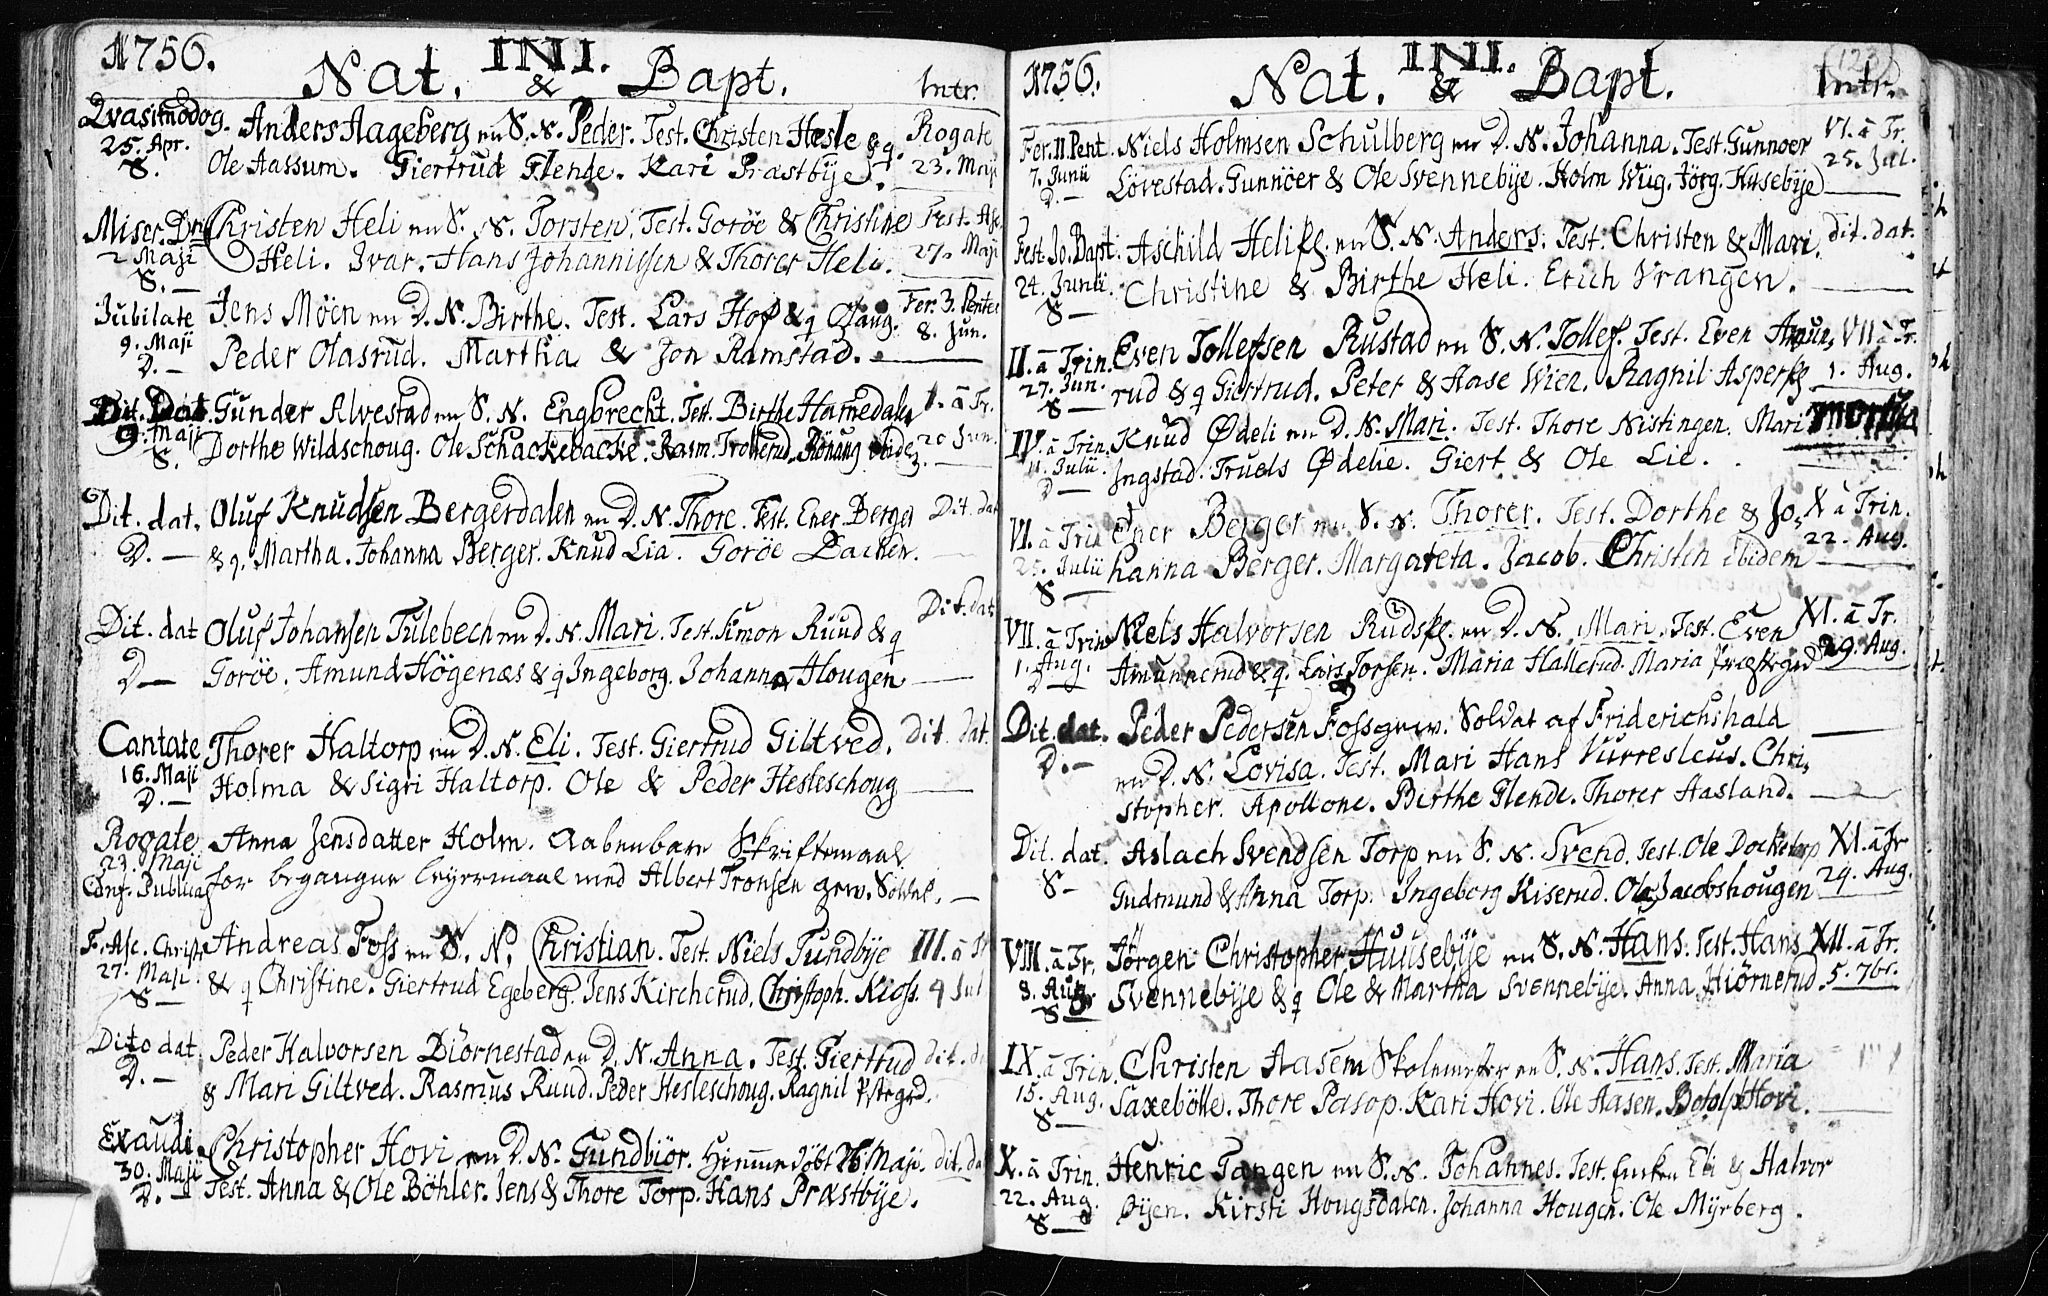 1756.
INI.
Nat. & Bapt. Intr.
Qvasimodog. Anders Aageberg en S. N. Peder. Test. Christen Hesle & q. Rogate
25. Apr. Ole Aassum. Giertrud Glende. Kari Præstbÿe. 23. Maji
S.
Miser. Dni Christen Heli en S. N. Torsten. Test. Goröe & Christine Fest. Asc
2 Maji Heli. Ivar. Hans Johannissen & Thorer Heli. 27. Maji
S. —
Jubilate Jens Möen en D. N. Birthe. Test. Lars Hof & q Gaug. Fer. 3. Pentec
9. Maji Peder Olasrud. Martha & Jon Ramstad. 8. Jun.
D. —
Dit. Dat Gunder Alvestad en S. N. Engbrecht. Test. Birthe Hamedalen 1. à Tr.
9. Maji Dorthe Wildschoug. Ole Schackebacke. Rasm. Trollerud. Rönaug ibidem 20 Jun.
S.
Dit. dat. Oluf Knudsen Bergerdalen en D. N. Thore. Test. Ener Berger Dit. dat
D. — & q. Martha. Johanna Berger. Knud Lia. Goröe Backen.
Dit. dat Oluf Johansen Tulebech en D. N. Mari. Test. Simon Ruud & q Dit. dat
D — Goröe. Amund Högenæs & q Ingeborg. Johanna Hougen
Cantate Thorer Haltorp en D. N. Eli. Test. Giertrud Giltved. Dit. dat.
16. Maji Holma & Sigri Haltorp. Ole & Peder Hesleschoug
D. —
Rogate Anna Jensdatter Holm. Aabenbare Skriftemaal
23. Maji for begangne leyermaal med Albert Tronsen gew. Soldat. —
Conf. Publica
F. Asc. Christi Andreas Foss en S. N. Christian. Test. Niels Tundbÿe III. à Tr
27. Maji & q Christine. Giertrud Egeberg. Jens Kircherud. Christoph. Kioss. 4 Jul
S —
Dito dat. Peder Halvorsen Biörnestad en D. N. Anna. Test. Giertrud dit. d
D. — & Mari Giltved. Rasmus Ruud. Peder Hesleschoug. Ragnil Pstegrd.
Exaudi. Christopher Hovi en D. N. Gundbiör. Hiemmedöbt Maji. dit. da
30. Maji Test. Anna & Ole Böhler. Jens & Thore Torp. Hans Præstbÿe.
D. —
1756.
INI.
Nat. & Bapt. Intr.
(123)
Fer. II. Pent Niels Holmsen Schulberg en D. N. Johanna. Test. Gunnoer VI. à Tr.
7. Junii Lövestad. Gunnöer & Ole Svennebÿe. Holm Wüg. Jörg. Husebÿe 25. Jul.
D. —
Fest. Jo. Bapt. Aschild Helies. en S. N. Anders. Test. Christen & Mari. dit. dat.
24. Junii Christine & Birthe Heli. Erich Vrangen.
S —
II. à Trin. Even Tollefsen Rustad en S. N. Tollef. Test. Even Amun, VII à Tr.
27. Jun. rud & q Giertrud. Peter & Aase Wien. Ragnil Aspers 1. Aug.
S —
IV. à Trin. Knud Ødeli en D. N. Mari. Test. Thore Nistingen. Mari
11. Julii. Ingstad. Truels Ødelie. Giert & Ole Lie.
D —
VI. à Trin Ener Berger en S. N. Thorer. Test. Dorthe & Jo, X à Trin.
25. Julii hanna Berger. Margareta. Jacob. Christen Ibidem 22. Aug.
S —
VII. à Trin Niels Halvorsen Rudses. en D. N. Mari. Test. Even XI. à Tr.
1. Aug. Amunnerud & q. Lars Torsen. Maria Hallerud. Maria Præstegrd 29. Aug.
D —
Dit. dat. Peder Pedersen Fossgrw. Soldat af Friderichshald
D. — en D. N. Lovisa. Test. Mari Hans Vurresleus. Chri,
stopher. Apollone. Birthe Glende. Thorer Aasland.
Dit. dat. Aslach Svendsen Torp en S. N. Svend. Test. Ole Dockstorp XI. à Tr
S — Gudmund & Anna Torp. Ingeborg Kiserud. Ole Jacobshougen 29. Aug.
VIII. à Tr. Jörgen Christopher Huusebÿe en S. N. Hans. Test. Hans XII. à Tr.
8. Aug. Svennebÿe & q Ole & Martha Svennebÿe. Anna Hiörnerud. 5. 7br.
S
IX. à Trin. Christen Aasem Skolemester en S. N. Hans. Test. Maria
15. Aug. Saxebölle. Thore Pasop. Kari Hovi. Ole Aasen. Botolph Hovi.
S —
X. à Trin. Henric Tangen en S. N. Johannes. Test. Enken Eli & Halvor
22. Aug. Øÿen. Kirsti Hougsdalen. Johanna Hougen. Ole Mÿrberg.
S —